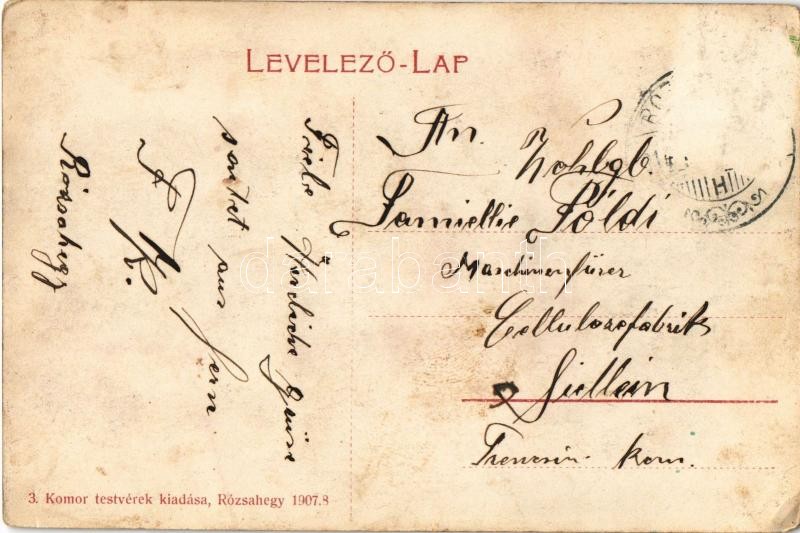 LEVELEZŐ-LAP
An.
Wohlgb.
Familie Földi
Maschinenfürer
Cellulosefabrik
Sillein
Trencsin kom.
Viele Herzliche Grüsse
sentet aus Fern
A K.
Rózsahegy
darabanth
3. Komor testvérek kiadása, Rózsahegy 1907.8